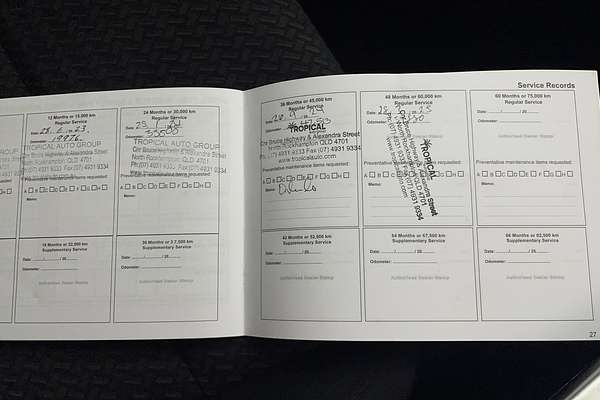 Service Records
12 Months or 15,000 km
Regular Service
Date:
Odometer:
TROPICAL AUTO GROUP
Cnr Bruce Highway & Alexandra Street
North Rockhampton QLD 4701
Ph (07) 4931 9333 Fax (07) 4931 9334
www.tropicalauto.com
Preventative maintenance items requested:
A B C D E F G H
Memo:
24 Months or 30,000 km
Regular Service
Date:
Odometer:
TROPICAL AUTO GROUP
Cnr Bruce Highway & Alexandra Street
North Rockhampton QLD 4701
Ph (07) 4931 9333 Fax (07) 4931 9334
www.tropicalauto.com
Preventative maintenance items requested:
A B C D E F G H
Memo:
36 Months or 45,000 km
Regular Service
Date:
Odometer:
TROPICAL
Cnr Bruce Highway & Alexandra Street
North Rockhampton QLD 4701
Ph (07) 4931 9333 Fax (07) 4931 9334
www.tropicalauto.com
Preventative maintenance items requested:
A B C D E F G H
Memo:
48 Months or 60,000 km
Regular Service
Date:
Odometer:
TROPICAL
Cnr Bruce Highway & Alexandra Street
North Rockhampton QLD 4701
Ph (07) 4931 9333 Fax (07) 4931 9334
www.tropicalauto.com
Preventative maintenance items requested:
A B C D E F G H
Memo:
60 Months or 75,000 km
Regular Service
Date: / / 20
Odometer:
Authorised Dealer Stamp
Preventative maintenance items requested:
A B C D E F G H
Memo:
18 Months or 22,500 km
Supplementary Service
Date: / / 20
Odometer:
Authorised Dealer Stamp
30 Months or 3 7,500 km
Supplementary Service
Date: / / 20
Odometer:
Authorised Dealer Stamp
42 Months or 52,500 km
Supplementary Service
Date: / / 20
Odometer:
Authorised Dealer Stamp
54 Months or 67,500 km
Supplementary Service
Date: / / 20
Odometer:
Authorised Dealer Stamp
66 Months or 82,500 km
Supplementary Service
Date: / / 20
Odometer:
Authorised Dealer Stamp
27